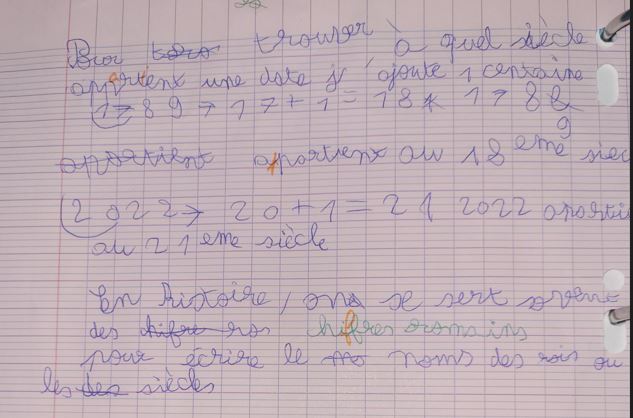 Pour trouver à quel siècle
appartient une date j'ajoute 1 centaine
1789 → 17 + 1 = 18 * 178
9
apartient apartient au 18 eme siec
2022 → 20 + 1 = 21 2022 aparti
au 21 eme siècle
En histoire, on se sert
des chifres romains
pour écrire le noms des rois ou
les siècles